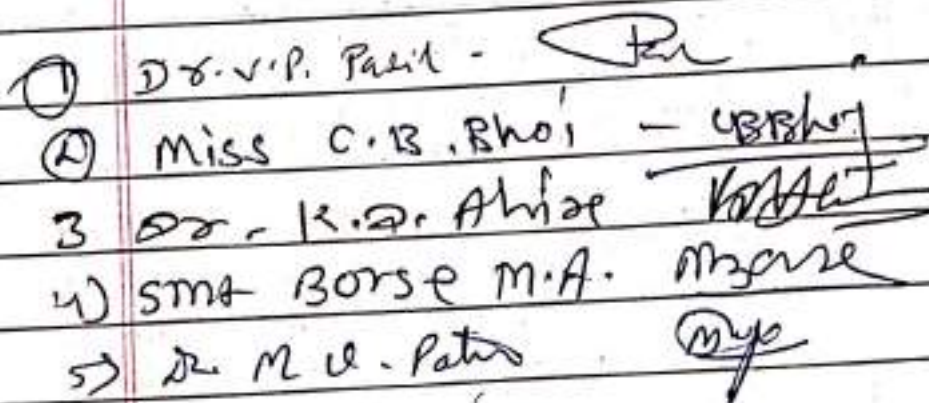 ① Dr. V.P. Patil -
② Miss C.B. Bhoi - CBBhoi
3 Dr. K.D. Ahire
4) Smt Borse M.A. MBorse
5) Dr. M V. Patil